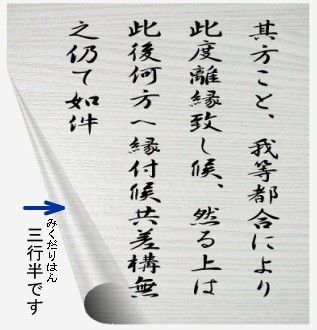 其方こと、我等都合により
此度離縁致し候、然る上は
此後何方へ縁付候共差構無
之仍て如件
みくだりはん
三行半です